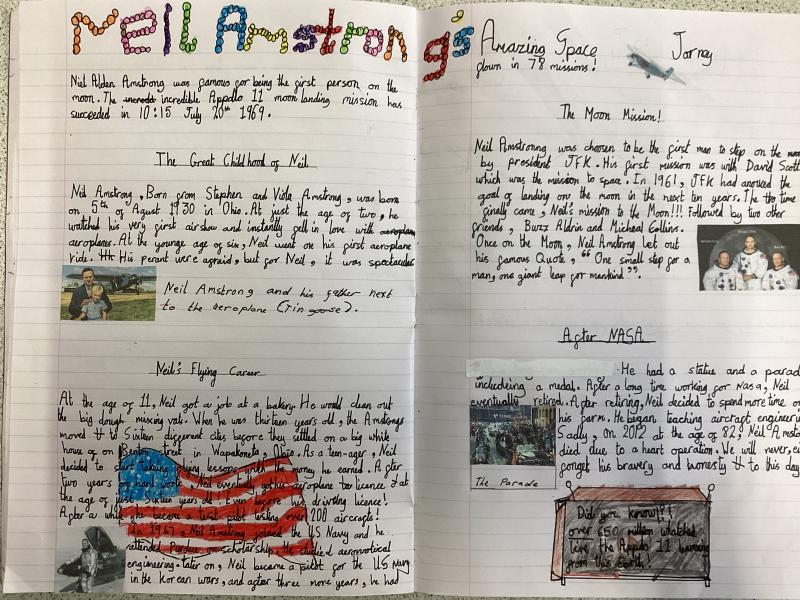 Neil Amstrong's
Niel Alden Amstrong was famous for being the first person on the
moon. The incredible Appollo 11 moon landing mission has
succeeded in 10:15 July 20th 1969.
The Great Childhood of Neil
Neil Amstrong, Born from Stephen and Viola Amstrong, was born
on 5th of Agust 1930 in Ohio. At just the age of two, he
watched his very first airshow and instantly fell in love with aeroplane
aeroplanes. At the younge age of six, Neil went on his first aeroplane
ride. His perant were afraid, but for Neil, it was spectacular
Neil Amstrong and his father next
to the aeroplane (Tin goose).
Neil's Flying Career
At the age of 11, Neil got a job at a bakery. He would clean out
the big dough mixing vats. When he was thirteen years old, the Amstrongs
moved to Sixteen different cites before they settled on a big white
house on Benton Street in Wapakoneta, Ohio. As a teen-ager, Neil
decided to start taking flying lessons with the money he earned. After
two years of hard work, Neil eventually got his aeroplane licence at
the age of just sixteen years old. Even before his driving licence!
After a while he became a test pilot testing over 200 aircrafts!
In 1947, Neil Amstrong joined the US Navy and he
attended Purdue on scholarship. He studied aeronotical
engineering. Later on, Neil became a pilot for the US Navy
in the Korean wars, and after three more years, he had
Amazing Space Jorney
flown in 78 missions!
The Moon Mission!
Neil Amstrong was choosen to be the first man to step on the moon
by president JFK. His first mission was with David Scott
which was the mission to space. In 1961, JFK had anouced the
goal of landing on the moon in the next ten years. The time
finally came, Neil's mission to the Moon!!! Followed by two other
friends, Buzz Aldrin and Micheal Collins.
Once on the Moon, Neil Amstrong let out
his famous Quote, "One small step for a
man, one giant leap for mankind".
After NASA
He had a statue and a parad
includeing a medal. After a long time working for Nasa, Neil
eventually retired. After retiring, Neil decided to spend more time on
his farm. He began teaching aircraft engineeri
Sadly, On 2012 at the age of 82, Neil Amstro
died due to a heart operation. We will never, ei
forget his bravery and honesty to this day
The Parade
Did you know!?!
over 650 million whatched
live the Appollo 11 landing
from this Earth!